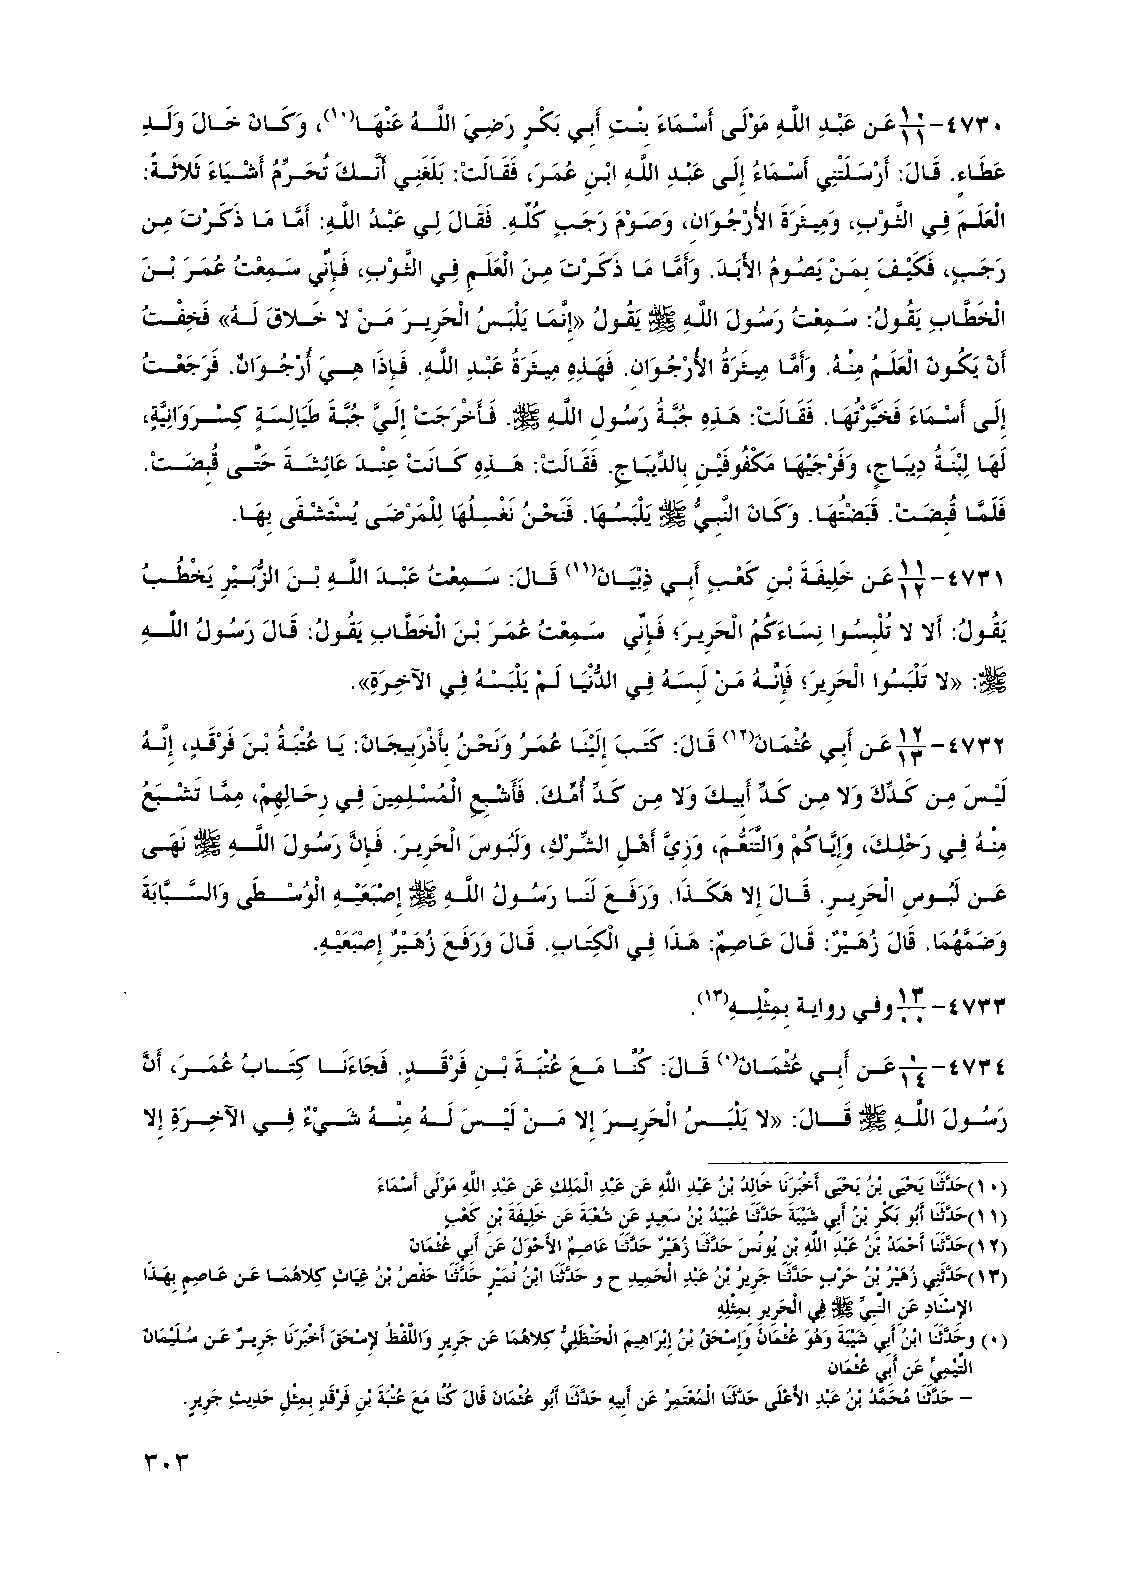 ٤٧٣٠-١٠/١١ عَن عَبْدِ اللَّهِ مَوْلَى أَسْمَاءَ بِنْتِ أَبِي بَكْرٍ رَضِيَ اللَّهُ عَنْهَا(١٠)، وَكَانَ خَالَ وَلَدِ
عَطَاءٍ. قَالَ: أَرْسَلَتْنِي أَسْمَاءُ إِلَى عَبْدِ اللَّهِ ابْنِ عُمَرَ، فَقَالَتْ: بَلَغَنِي أَنَّكَ تُحَرِّمُ أَشْيَاءَ ثَلاثَةً:
الْعَلَمَ فِي الثَّوْبِ، وَمِيثَرَةَ الأُرْجُوَانِ، وَصَوْمَ رَجَبٍ كُلِّهِ. فَقَالَ لِي عَبْدُ اللَّهِ: أَمَّا مَا ذَكَرْتَ مِن
رَجَبٍ، فَكَيْفَ بِمَنْ يَصُومُ الأَبَدَ. وَأَمَّا مَا ذَكَرْتَ مِنَ الْعَلَمِ فِي الثَّوْبِ، فَإِنِّي سَمِعْتُ عُمَرَ بْنَ
الْخَطَّابِ يَقُولُ: سَمِعْتُ رَسُولَ اللَّهِ ﷺ يَقُولُ «إِنَّمَا يَلْبَسُ الْحَرِيرَ مَنْ لا خَلاقَ لَهُ» فَخِفْتُ
أَنْ يَكُونَ الْعَلَمُ مِنْهُ. وَأَمَّا مِيثَرَةُ الأُرْجُوَانِ. فَهَذِهِ مِيثَرَةُ عَبْدِ اللَّهِ. فَإِذَا هِيَ أُرْجُوَانٌ. فَرَجَعْتُ
إِلَى أَسْمَاءَ فَخَبَّرْتُهَا. فَقَالَتْ: هَذِهِ جُبَّةُ رَسُولِ اللَّهِ ﷺ. فَأَخْرَجَتْ إِلَيَّ جُبَّةَ طَيَالِسَةٍ كِسْرَوَانِيَّةٍ،
لَهَا لِبْنَةُ دِيبَاجٍ، وَفَرْجَيْهَا مَكْفُوفَيْنِ بِالدِّيبَاجِ. فَقَالَتْ: هَذِهِ كَانَتْ عِنْدَ عَائِشَةَ حَتَّى قُبِضَتْ.
فَلَمَّا قُبِضَتْ. قَبَضْتُهَا. وَكَانَ النَّبِيُّ ﷺ يَلْبَسُهَا. فَنَحْنُ نَغْسِلُهَا لِلْمَرْضَى يُسْتَشْفَى بِهَا.
٤٧٣١-١١/١٢ عَن خَلِيفَةَ بْنِ كَعْبٍ أَبِي ذِبْيَانَ(١١) قَالَ: سَمِعْتُ عَبْدَ اللَّهِ بْنَ الزُّبَيْرِ يَخْطُبُ
يَقُولُ: أَلا لا تُلْبِسُوا نِسَاءَكُمُ الْحَرِيرَ؛ فَإِنِّي سَمِعْتُ عُمَرَ بْنَ الْخَطَّابِ يَقُولُ: قَالَ رَسُولُ اللَّهِ
ﷺ: «لا تَلْبَسُوا الْحَرِيرَ؛ فَإِنَّهُ مَنْ لَبِسَهُ فِي الدُّنْيَا لَمْ يَلْبَسْهُ فِي الآخِرَةِ».
٤٧٣٢-١٢/١٣ عَن أَبِي عُثْمَانَ(١٢) قَالَ: كَتَبَ إِلَيْنَا عُمَرُ وَنَحْنُ بِأَذْرَبِيجَانَ: يَا عُتْبَةُ بْنَ فَرْقَدٍ، إِنَّهُ
لَيْسَ مِن كَدِّكَ وَلا مِن كَدِّ أَبِيكَ وَلا مِن كَدِّ أُمِّكَ. فَأَشْبِعِ الْمُسْلِمِينَ فِي رِحَالِهِمْ، مِمَّا تَشْبَعُ
مِنْهُ فِي رَحْلِكَ، وَإِيَّاكُمْ وَالتَّنَعُّمَ، وَزِيَّ أَهْلِ الشِّرْكِ، وَلَبُوسَ الْحَرِيرَ. فَإِنَّ رَسُولَ اللَّهِ ﷺ نَهَى
عَن لَبُوسِ الْحَرِيرِ. قَالَ إِلا هَكَذَا. وَرَفَعَ لَنَا رَسُولُ اللَّهِ ﷺ إِصْبَعَيْهِ الْوُسْطَى وَالسَّبَّابَةَ
وَضَمَّهُمَا. قَالَ زُهَيْرٌ: قَالَ عَاصِمٌ: هَذَا فِي الْكِتَابِ. قَالَ وَرَفَعَ زُهَيْرٌ إِصْبَعَيْهِ.
٤٧٣٣-١٣/٠٠ وفي رواية بِمِثْلِهِ(١٣).
٤٧٣٤-٠/١٤ عَن أَبِي عُثْمَانَ(٠) قَالَ: كُنَّا مَعَ عُتْبَةَ بْنِ فَرْقَدٍ. فَجَاءَنَا كِتَابُ عُمَرَ، أَنَّ
رَسُولَ اللَّهِ ﷺ قَالَ: «لا يَلْبَسُ الْحَرِيرَ إِلا مَنْ لَيْسَ لَهُ مِنْهُ شَيْءٌ فِي الآخِرَةِ إِلا
(١٠)حَدَّثَنَا يَحْيَى بْنُ يَحْيَى أَخْبَرَنَا خَالِدُ بْنُ عَبْدِ اللَّهِ عَن عَبْدِ الْمَلِكِ عَن عَبْدِ اللَّهِ مَوْلَى أَسْمَاءَ
(١١)حَدَّثَنَا أَبُو بَكْرِ بْنُ أَبِي شَيْبَةَ حَدَّثَنَا عُبَيْدُ بْنُ سَعِيدٍ عَن شُعْبَةَ عَن خَلِيفَةَ بْنِ كَعْبٍ
(١٢)حَدَّثَنَا أَحْمَدُ بْنُ عَبْدِ اللَّهِ بْنِ يُونُسَ حَدَّثَنَا زُهَيْرٌ حَدَّثَنَا عَاصِمٌ الأَحْوَلُ عَن أَبِي عُثْمَانَ
(١٣)حَدَّثَنِي زُهَيْرُ بْنُ حَرْبٍ حَدَّثَنَا جَرِيرُ بْنُ عَبْدِ الْحَمِيدِ ح و حَدَّثَنَا ابْنُ نُمَيْرٍ حَدَّثَنَا حَفْصُ بْنُ غِيَاثٍ كِلاهُمَا عَن عَاصِمٍ بِهَذَا
الإِسْنَادِ عَن النَّبِيِّ ﷺ فِي الْحَرِيرِ بِمِثْلِهِ
(٠) وحَدَّثَنَا ابْنُ أَبِي شَيْبَةَ وَهُوَ عُثْمَانُ وَإِسْحَقُ بْنُ إِبْرَاهِيمَ الْحَنْظَلِيُّ كِلاهُمَا عَن جَرِيرٍ وَاللَّفْظُ لِإِسْحَقَ أَخْبَرَنَا جَرِيرٌ عَن سُلَيْمَانَ
التَّيْمِيِّ عَن أَبِي عُثْمَانَ
– حَدَّثَنَا مُحَمَّدُ بْنُ عَبْدِ الأَعْلَى حَدَّثَنَا الْمُعْتَمِرُ عَن أَبِيهِ حَدَّثَنَا أَبُو عُثْمَانَ قَالَ كُنَّا مَعَ عُتْبَةَ بْنِ فَرْقَدٍ بِمِثْلِ حَدِيثِ جَرِيرٍ.
٣٠٣